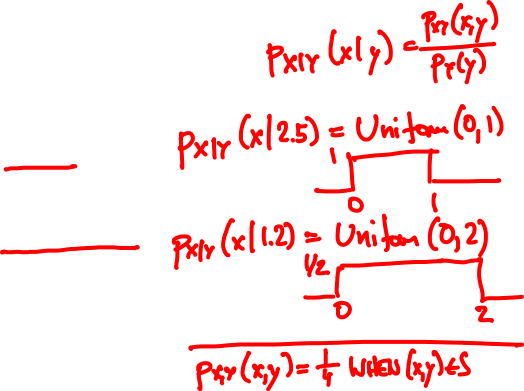 P_{X|Y}(x|y) = P_{XY}(x,y) / P_Y(y)
P_{X|Y}(x|2.5) = Uniform(0,1)
1
0 1
P_{X|Y}(x|1.2) = Uniform(0,2)
1/2
0 2
P_{X,Y}(x,y) = 1/4 WHEN (x,y) ∈ S